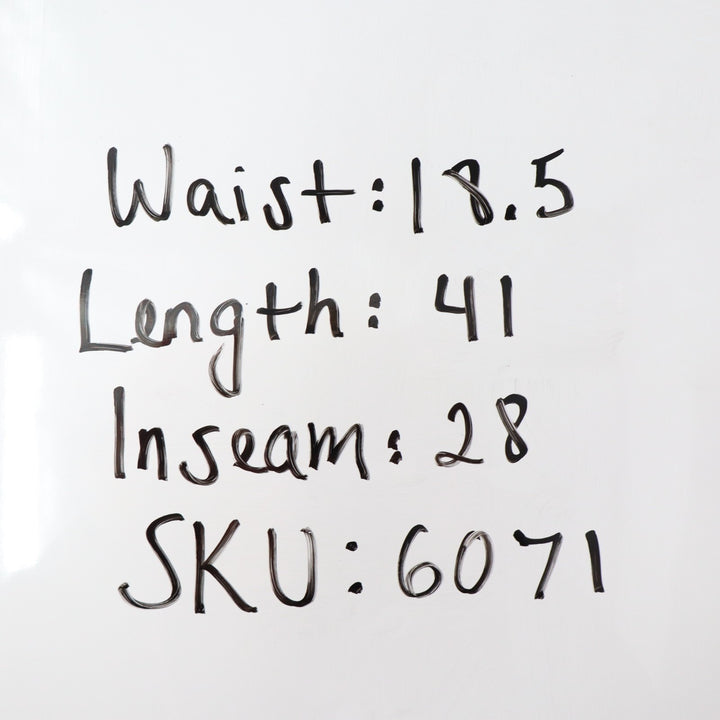 Waist: 18.5
Length: 41
Inseam: 28
SKU: 6071